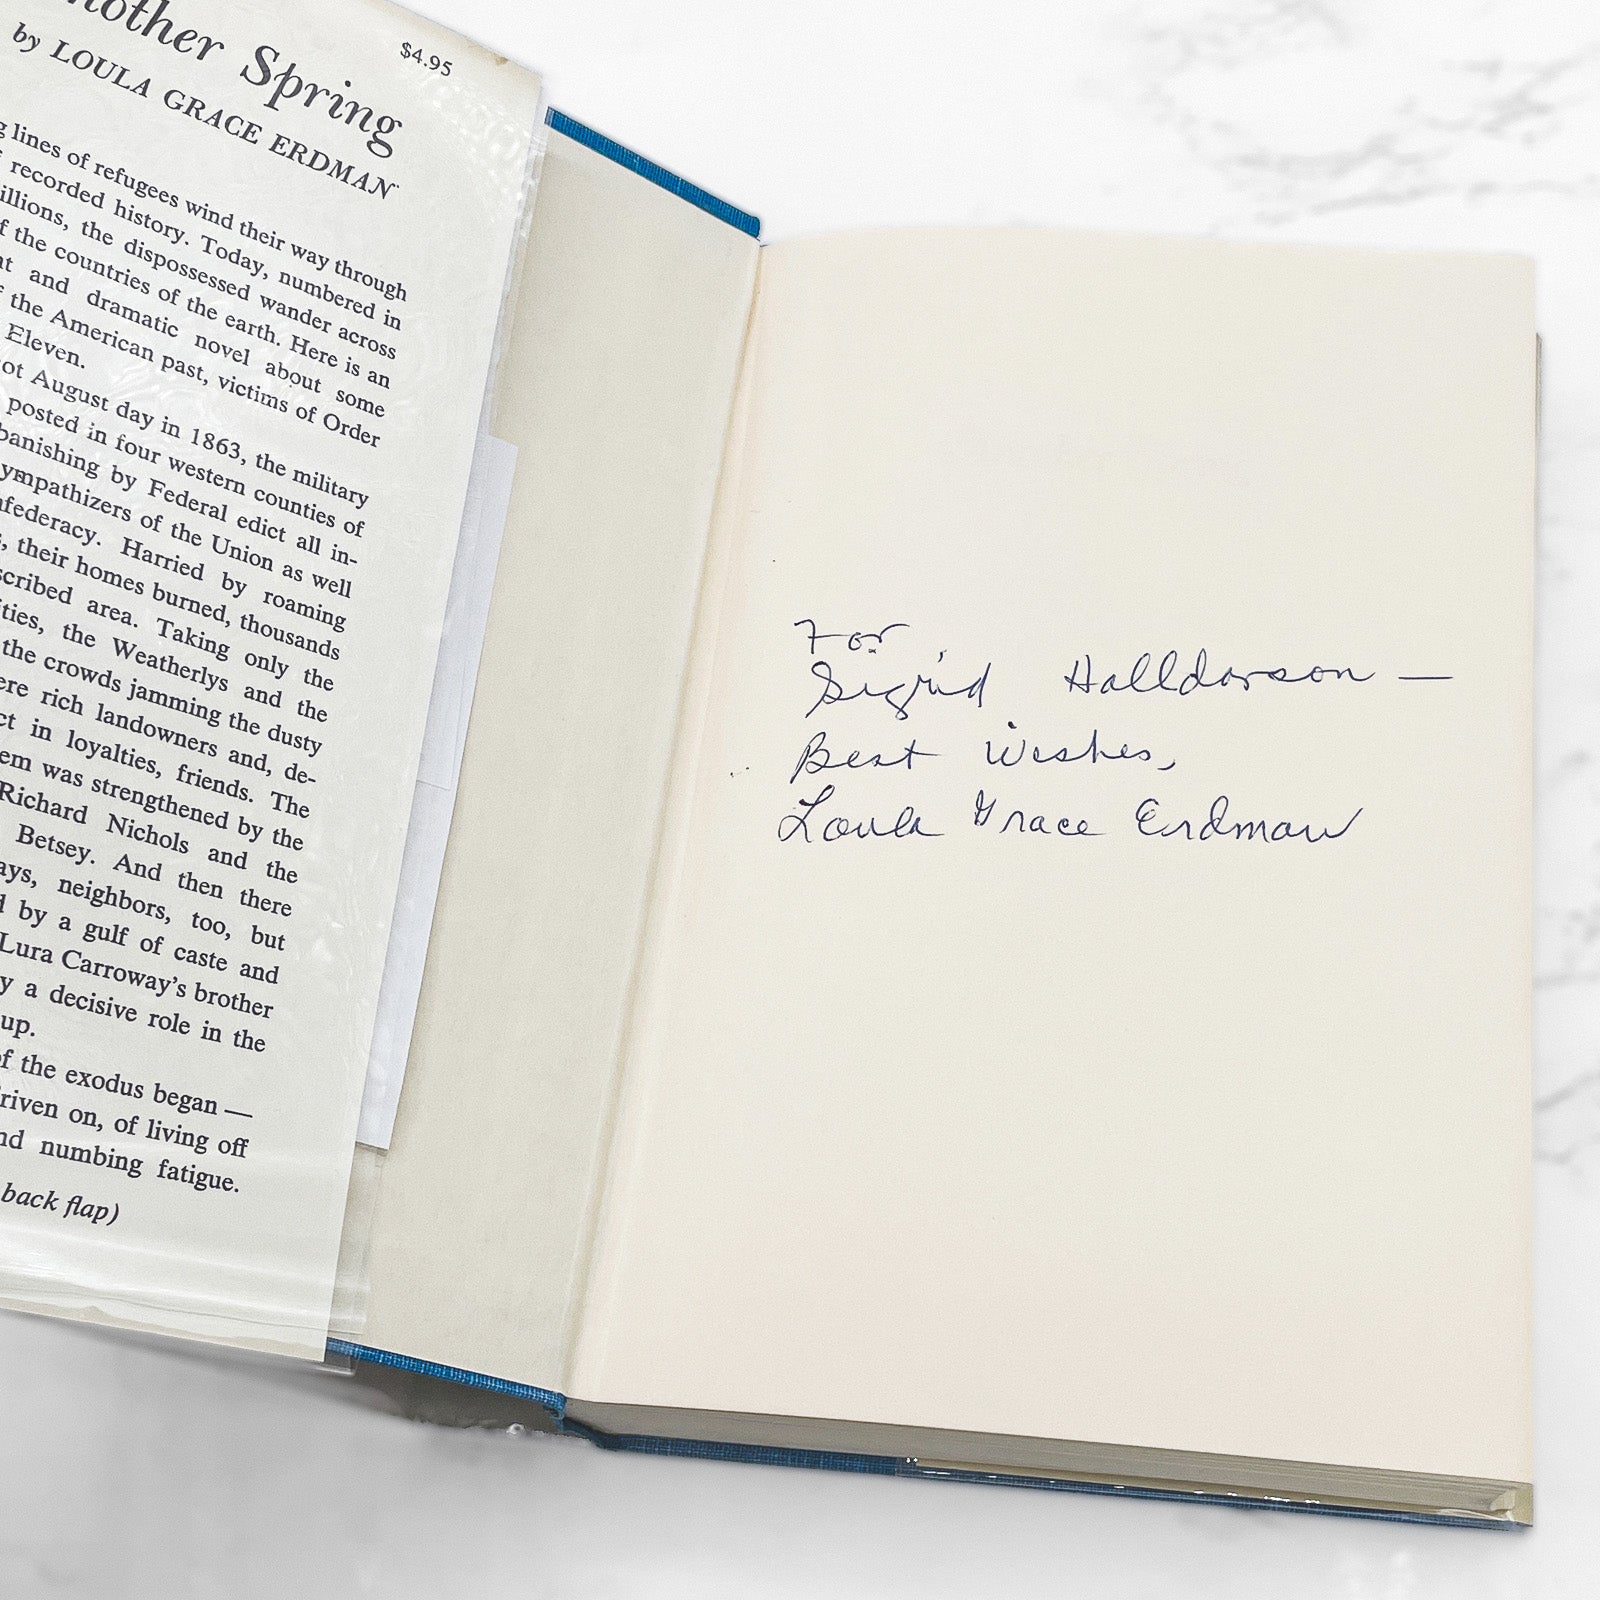 nother Spring
$4.95
by LOULA GRACE ERDMAN
lines of refugees wind their way through
recorded history. Today, numbered in
illions, the dispossessed wander across
f the countries of the earth. Here is an
nt and dramatic novel about some
f the American past, victims of Order
Eleven.
ot August day in 1863, the military
posted in four western counties of
banishing by Federal edict all in-
ympathizers of the Union as well
nfederacy. Harried by roaming
s, their homes burned, thousands
scribed area. Taking only the
ities, the Weatherlys and the
the crowds jamming the dusty
ere rich landowners and, de-
ct in loyalties, friends. The
em was strengthened by the
Richard Nichols and the
Betsey. And then there
ays, neighbors, too, but
d by a gulf of caste and
Lura Carroway's brother
y a decisive role in the
up.
of the exodus began —
riven on, of living off
nd numbing fatigue.
back flap)
For
Sigrid Halldorson —
Best Wishes,
Loula Grace Erdman